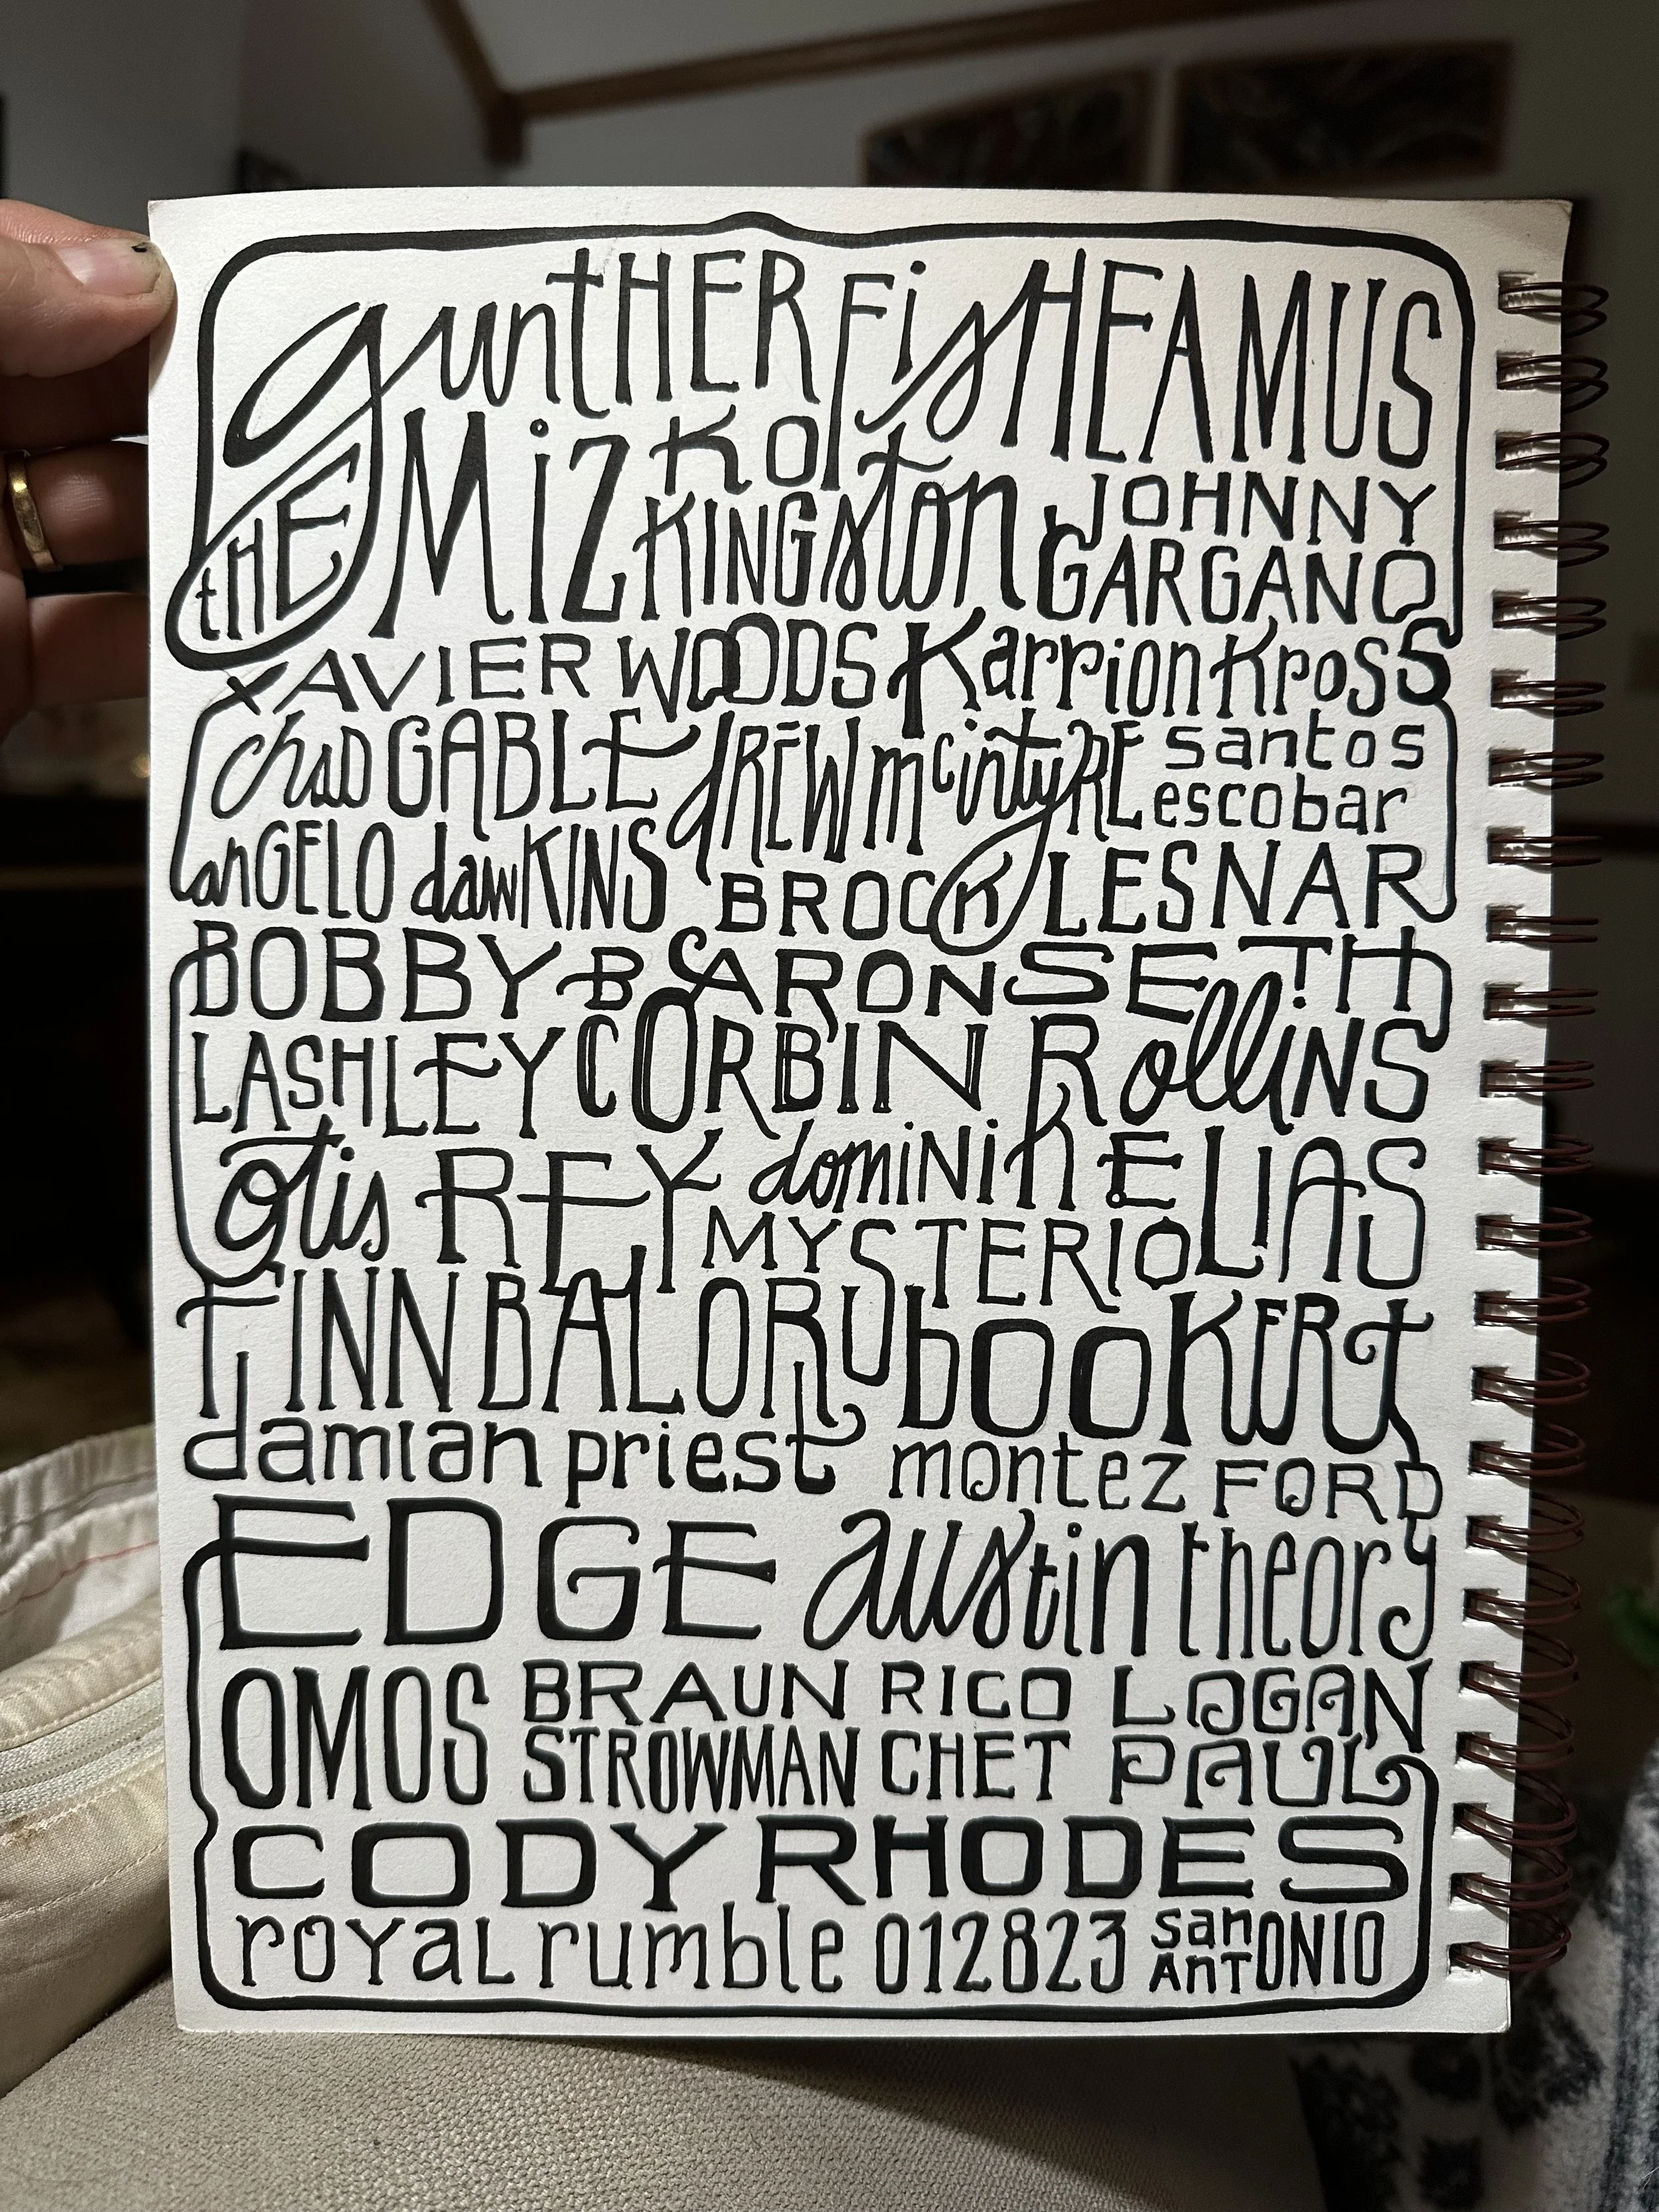 guntHER sHEAMUS
tHE MiZ KOFi KINGston JOHNNY GARGANO
XAVIER WOODS Karrion Kross
chaD GABLE dREW mcintyRE santos escobar
anGELO dawKINS BROCK LESNAR
BOBBY BARON SETH
LASHLEY CORBIN RollINS
otis REY dominiK ELIAS
MYSTERIO
FINN BALOR booKERT
damian priest montez FORD
EDGE austin theory
OMOS BRAUN RICO LOGAN
STROWMAN CHET PAUL
CODY RHODES
royaL rumble 012823 san AnTONIO